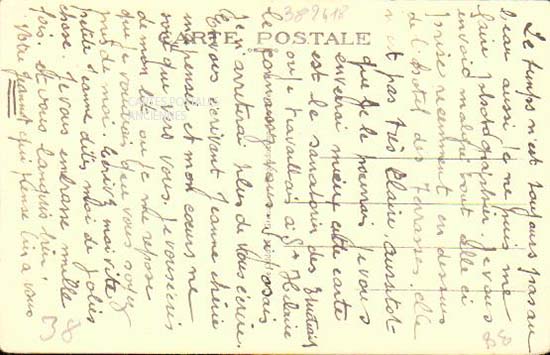 389618
CARTE POSTALE
CARTES POSTALES
ANCIENNES
Le temps n'est toujours pas au
beau aussi je ne puis me
faire photographier. Je vous
envoie malgré tout celle ci
prise récemment en dessus
de l'hôtel des Terrasses. elle
n'est pas très claire, aussitôt
que je le pourrai je vous
enverrai mieux cette carte
est le sanatorium des
ou je travaillais à St Hilaire
le connaissez vous si j'osais
je n'arrêterai plus de vous écrire.
En vous écrivant Jeanne chérie
ma pensée et mon cœur ne
sont que vers vous. Je vous écris
de mon lit ou je me repose
que je voudrai vous voir
près de moi. Ecrivez moi vite
petite Jeanne dites moi de jolies
choses. Je vous embrasse mille
fois. et vous
Votre qui pense bien à vous
38
850